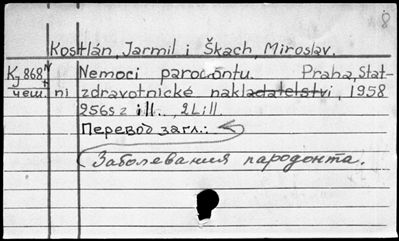 8
Kostlán, Jarmil i Škach, Miroslav.
Kj 868 Nemoci parodontu. Praha, Stat-
чеш. ni zdravotnické nakladatelstvi, 1958
256s z ill., 2 L ill.
Перевод загл.:
Заболевания пародонта.